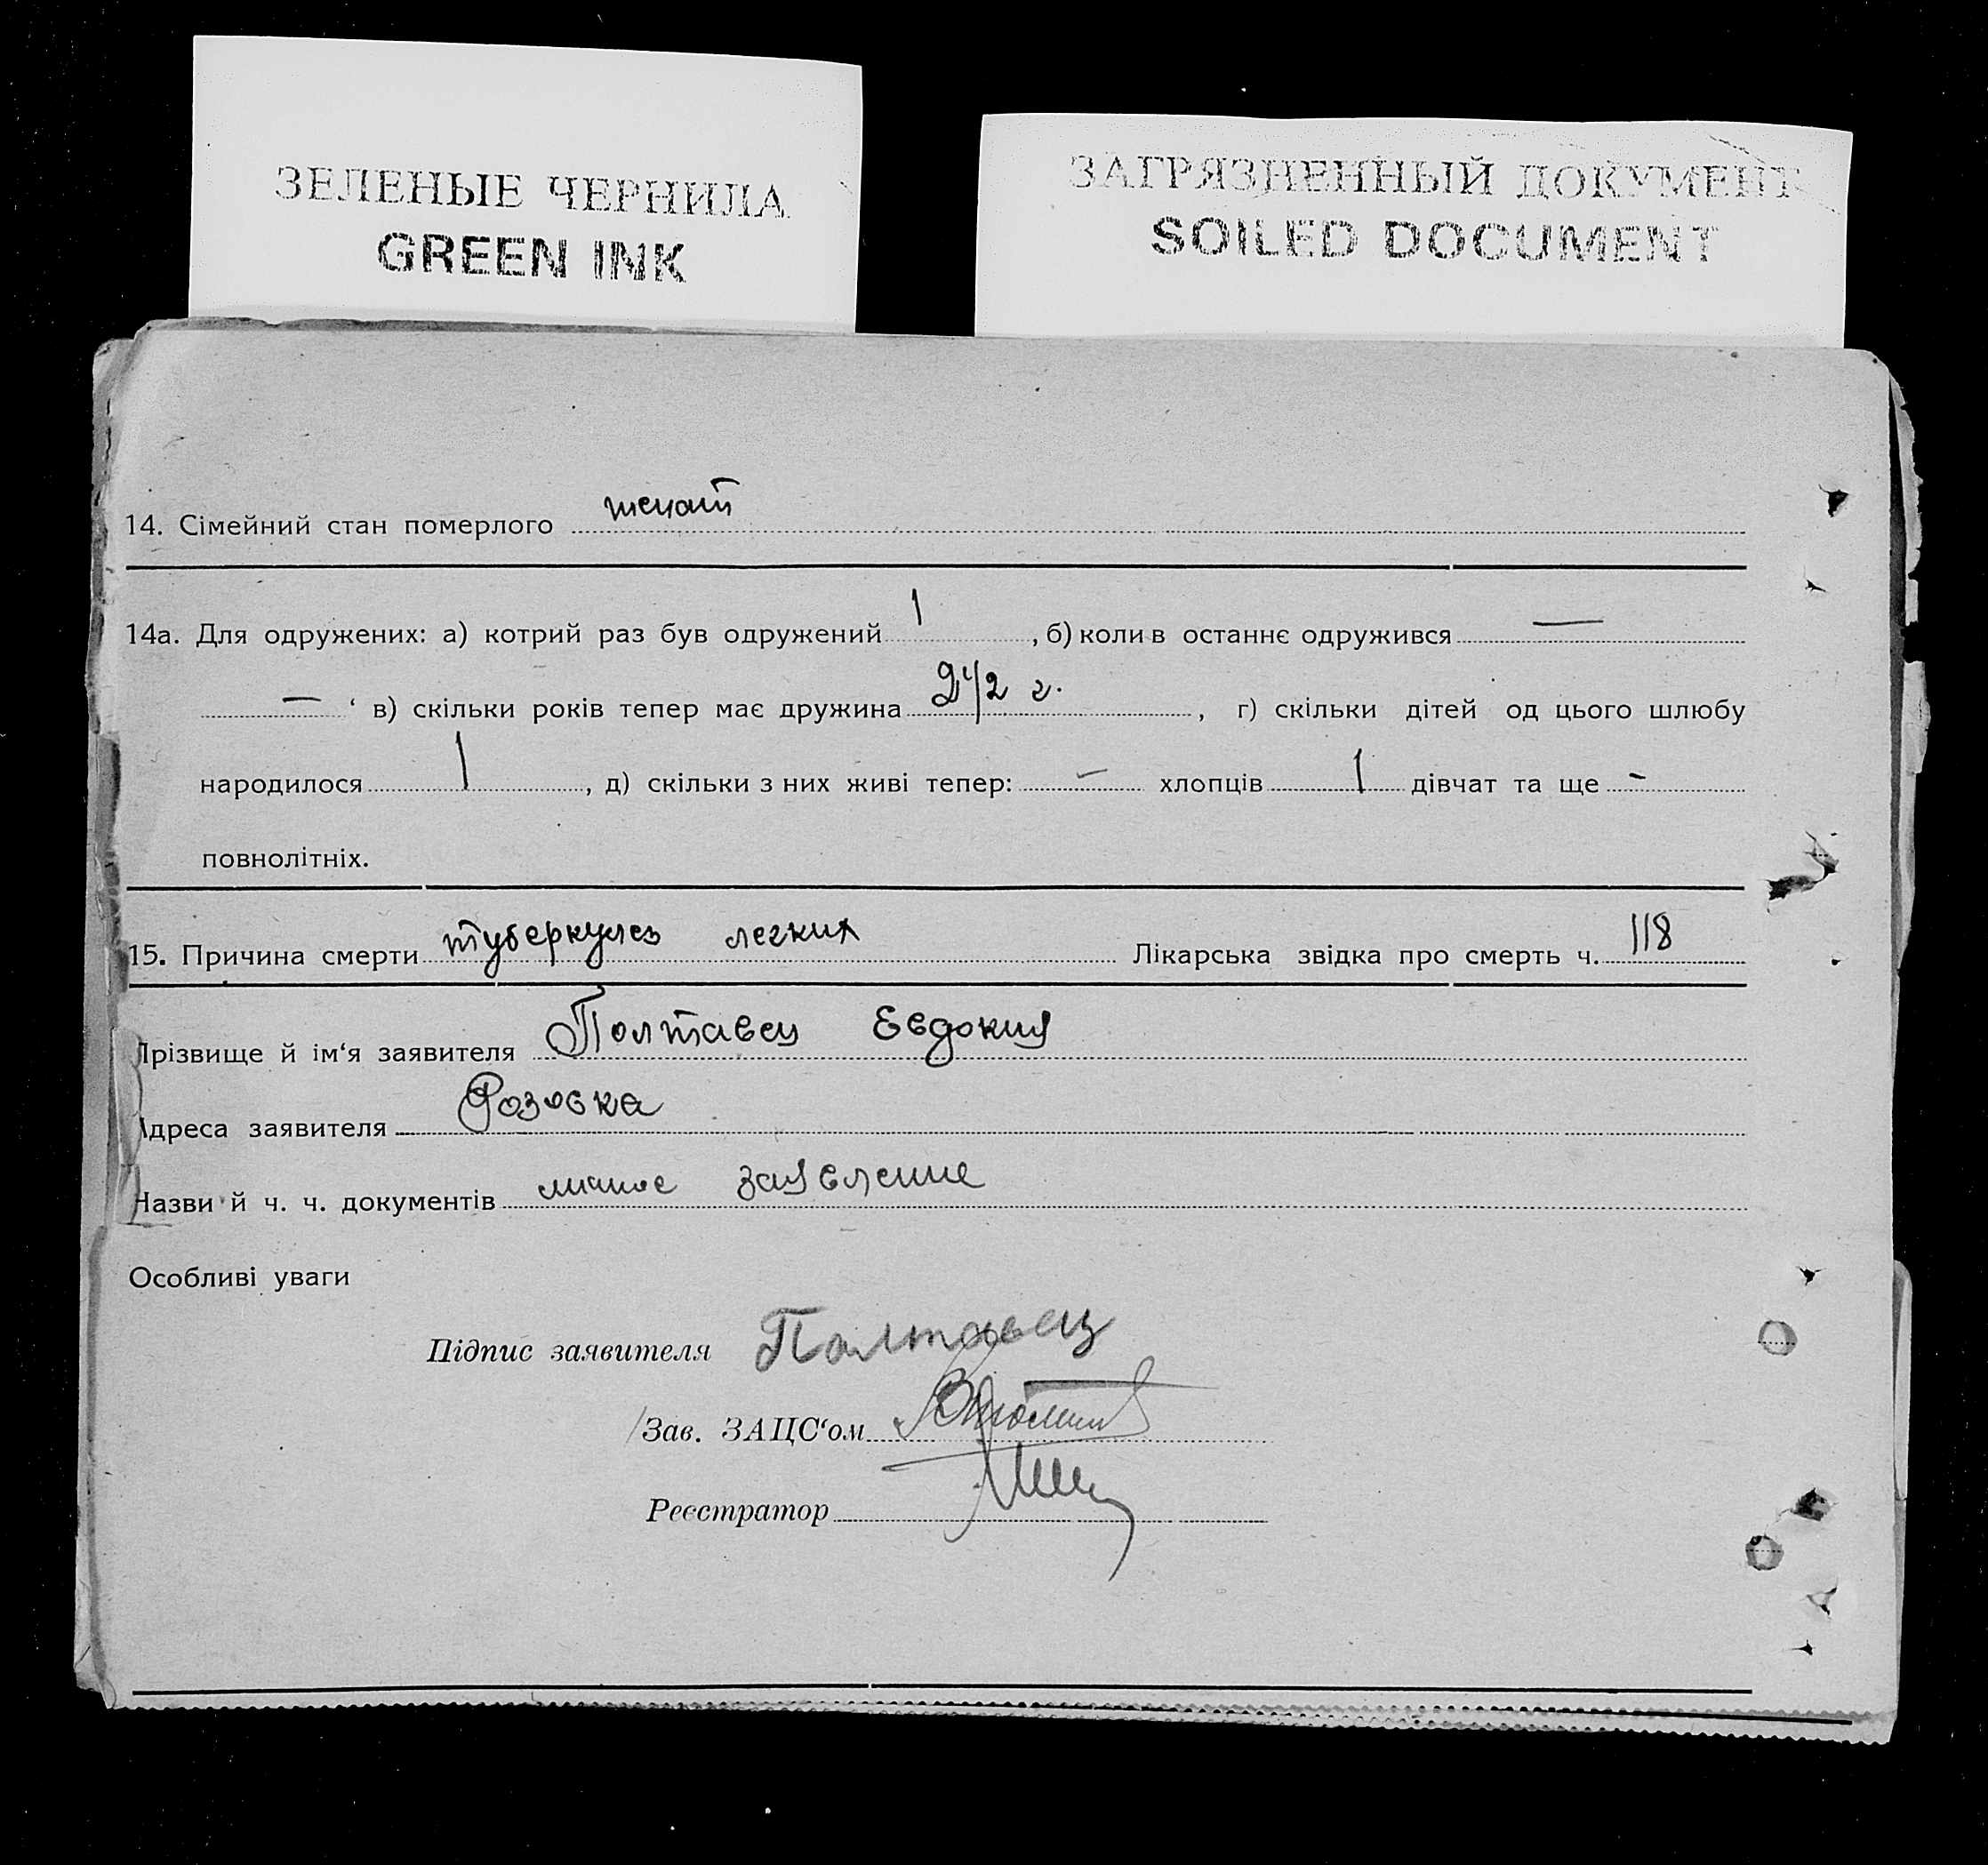 ЗЕЛЕНЫЕ ЧЕРНИЛА
GREEN INK
ЗАГРЯЗНЕННЫЙ ДОКУМЕНТ
SOILED DOCUMENT
14. Сімейний стан померлого женат
14а. Для одружених: а) котрий раз був одружений 1, б) коли в останнє одружився —
— ‘ в) скільки років тепер має дружина 2 1/2 г., г) скільки дітей од цього шлюбу
народилося 1, д) скільки з них живі тепер: — хлопців 1 дівчат та ще -
повнолітніх.
15. Причина смерти туберкулез легких Лікарська звідка про смерть ч. 118
Прізвище й ім‘я заявителя Полтавец Евдокия
Адреса заявителя Розовка
Назви й ч. ч. документів личное заявление
Особливі уваги
Підпис заявителя Полтавец
Зав. ЗАЦС‘ом
Реєстратор